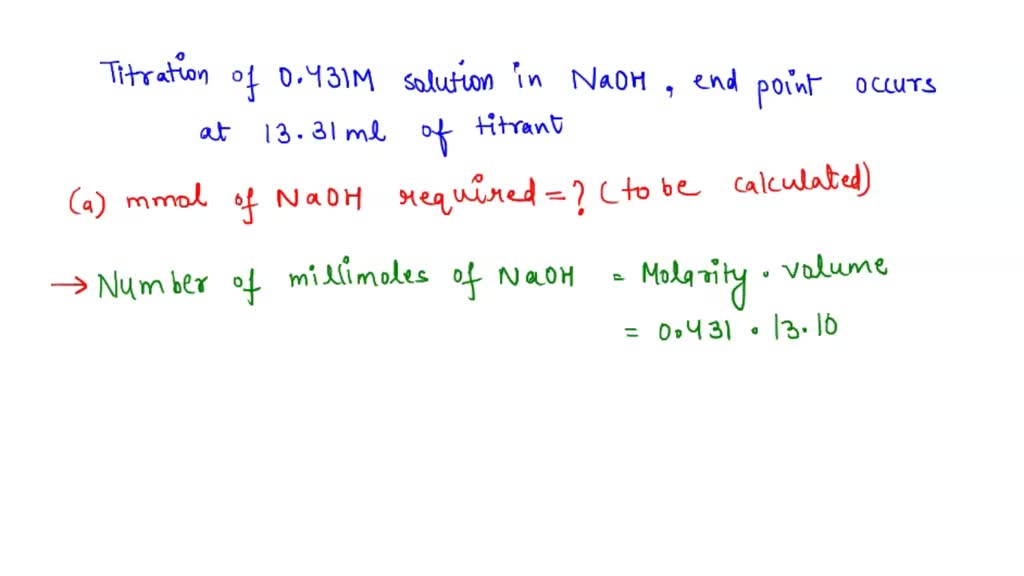 Titration of 0.431M solution in NaOH, end point occurs
at 13.31 ml of titrant
(a) mmol of NaOH required = ? (to be calculated)
→ Number of millimoles of NaOH = Molarity · volume
= 0.431 · 13.10